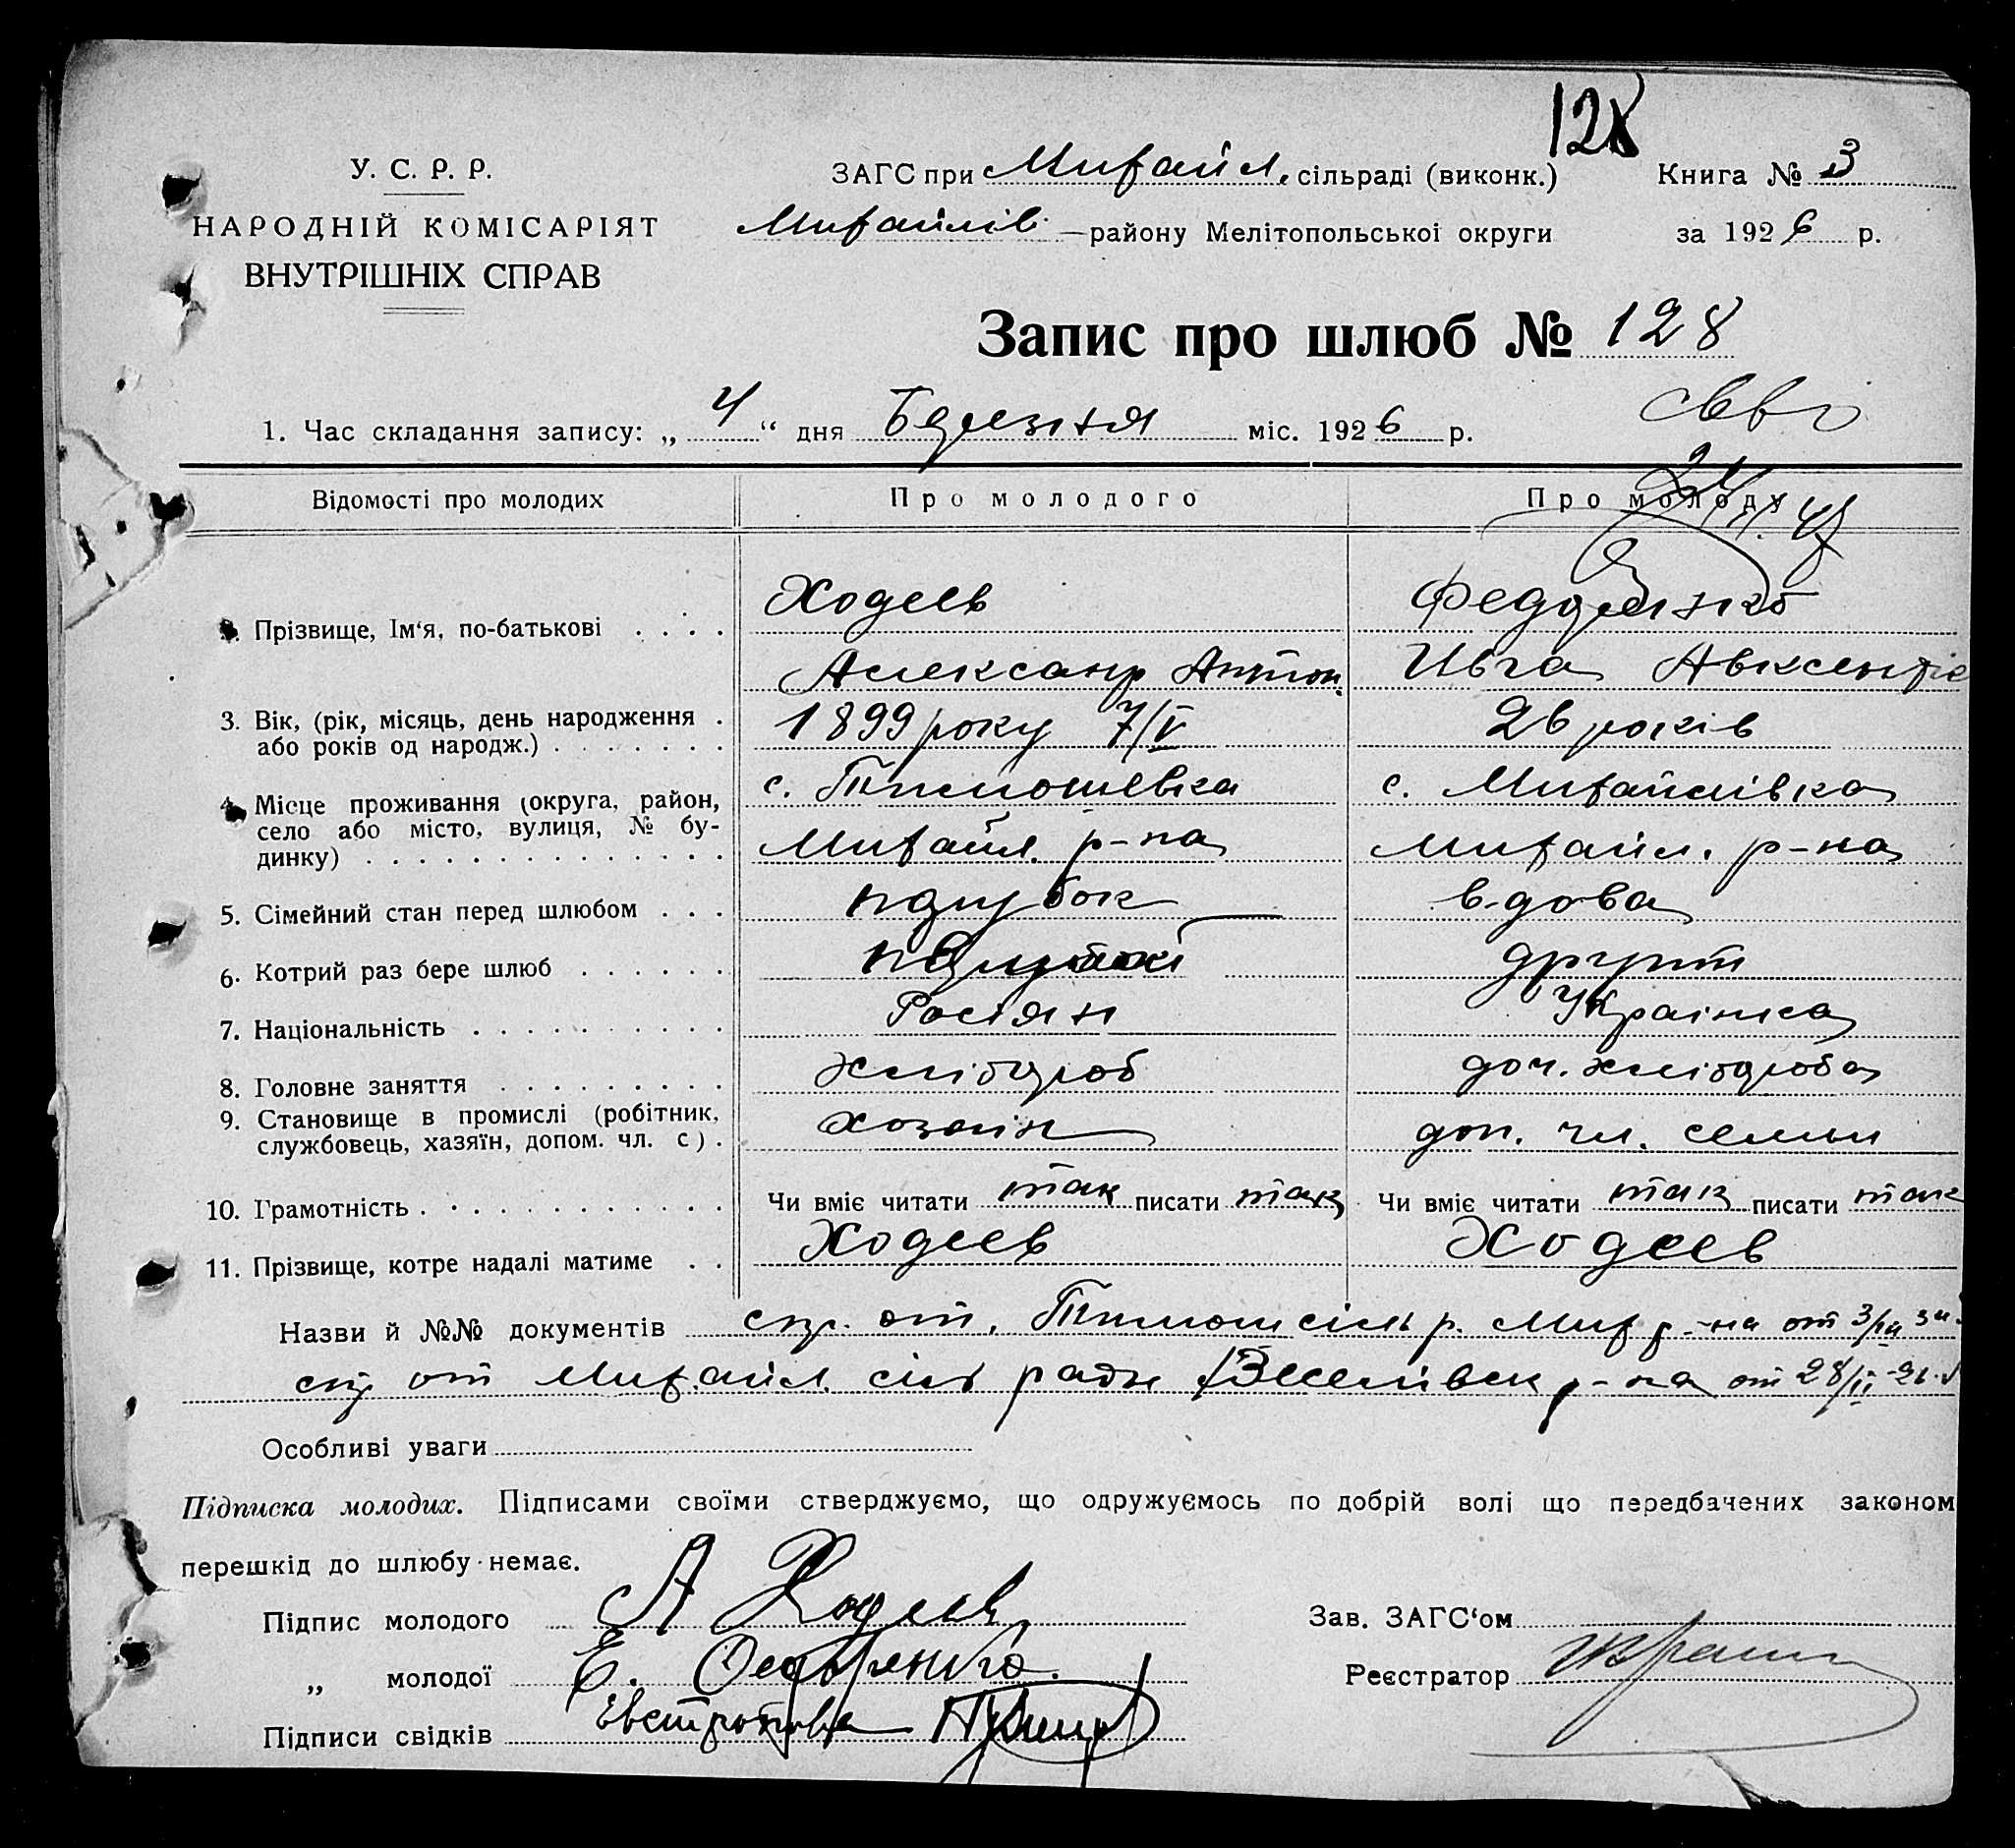 128
У. С. Р. Р.
НАРОДНІЙ КОМІСАРІЯТ
ВНУТРІШНІХ СПРАВ
ЗАГС при Михайл. сільраді (виконк.) Книга № 3
Михайлів. району Мелітопольської округи за 1926 р.
Запис про шлюб № 128
1. Час складання запису: „ 4 “ дня Березня міс. 1926 р.
Відомості про молодих Про молодого Про молоду
Ходеев Федоренко
2. Прізвище, Ім‘я, по-батькові
Александр Антон. Ивга Авксентіе
3. Вік, (рік, місяць, день народження або років од народж.) 1899 року 7/V 26 років
с. Тимошевка с. Михайлівка
4. Місце проживання (округа, район, село або місто, вулиця, № будинку)
Михайл. р-на Михайл. р-на
5. Сімейний стан перед шлюбом парубок вдова
6. Котрий раз бере шлюб другий
7. Національність Росіян Українка
8. Головне заняття хлібороб доч. хлібороба
9. Становище в промислі (робітник, службовець, хазяїн, допом. чл. с) хозяїн доп. чл. семьи
10. Грамотність Чи вміє читати так писати так Чи вміє читати так писати так
11. Прізвище, котре надалі матиме Ходеев Ходеев
Назви й №№ документів спр. от. Тимош сіль р. Мих р-на от 3/III
спр от Михайл. сіль ради Веселівск р-на от 28/II-26.
Особливі уваги
Підписка молодих. Підписами своїми стверджуємо, що одружуємось по добрій волі що передбачених законом
перешкід до шлюбу немає.
Підпис молодого А Ходеев Зав. ЗАГС‘ом
„ молодої Е. Федоренко. Реєстратор
Підписи свідків Евстропова